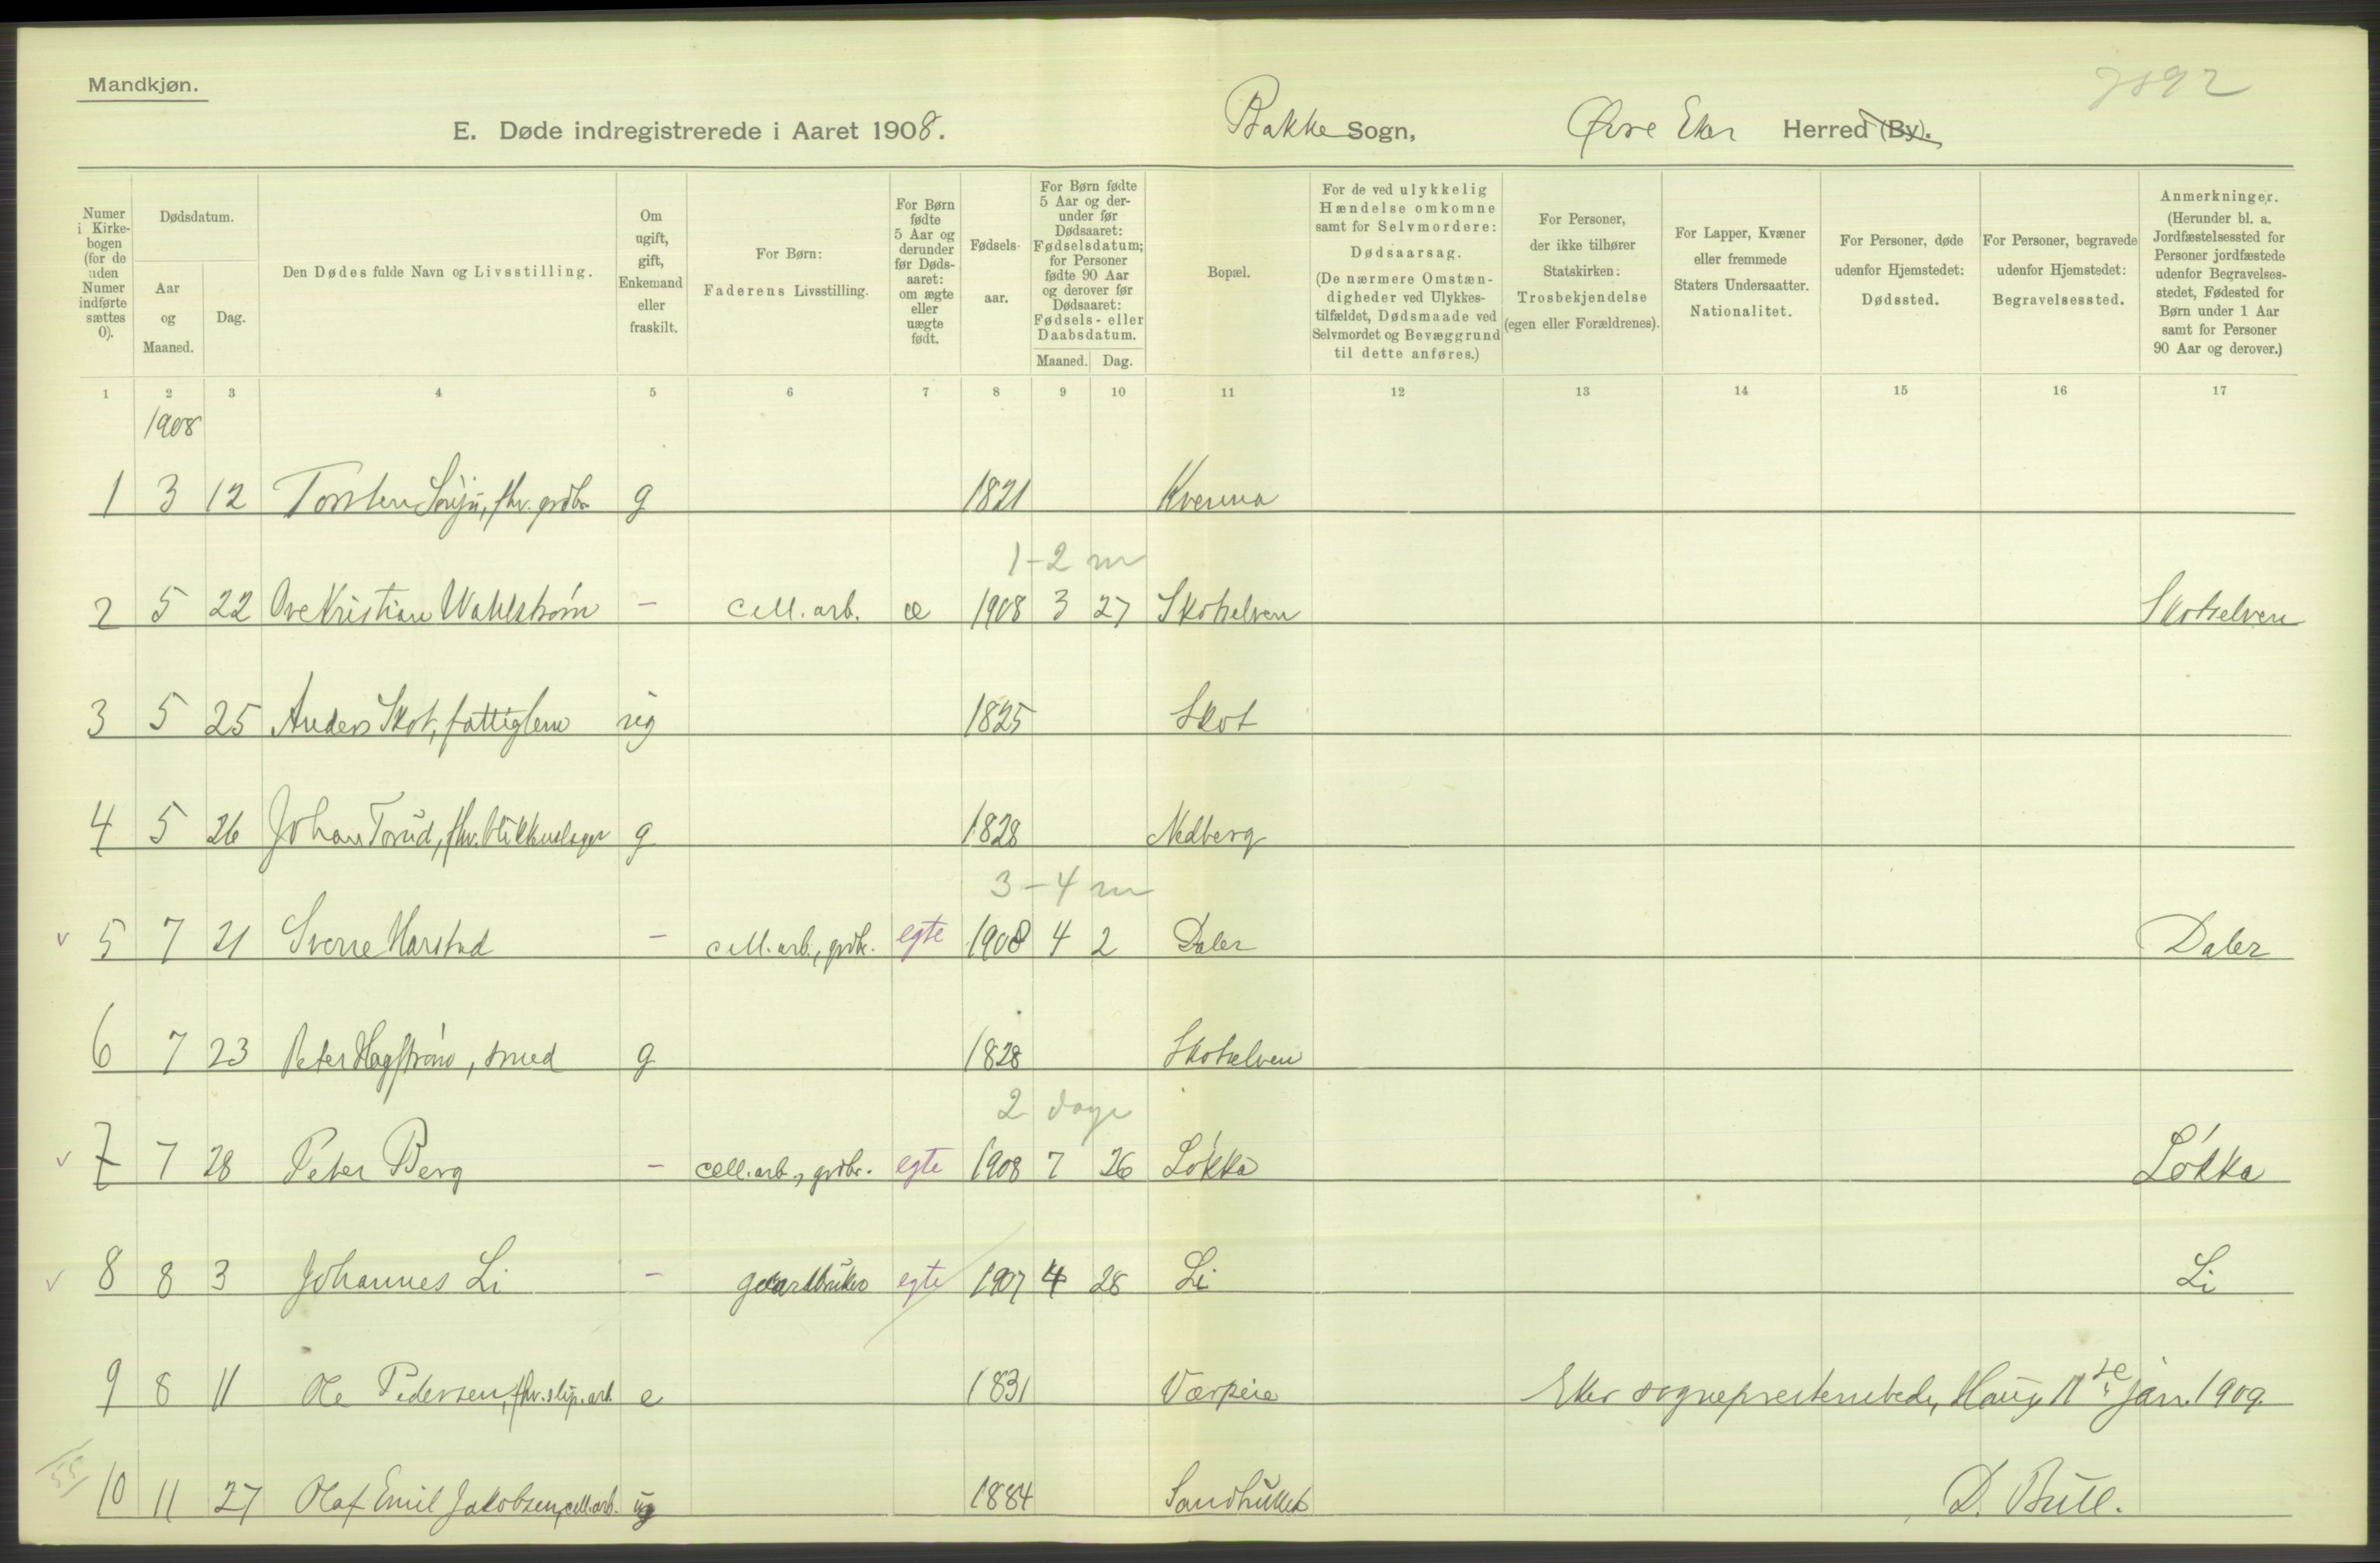 Mandkjøn.
7892
E. Døde indregistrerede i Aaret 1908. Bakke Sogn, Øvre Eker Herred (By).
Numer i Kirkebogen (for de uden Numer indførte sættes 0).
Dødsdatum.
Aar og Maaned.
Dag.
Den Dødes fulde Navn og Livsstilling.
Om ugift, gift, Enkemand eller fraskilt.
For Børn: Faderens Livsstilling.
For Børn fødte 5 Aar og derunder før Dødsaaret: om ægte eller uægte født.
Fødselsaar.
For Børn fødte 5 Aar og derunder før Dødsaaret: Fødselsdatum; for Personer fødte 90 Aar og derover før Dødsaaret: Fødsels- eller Daabsdatum.
Maaned. Dag.
Bopæl.
For de ved ulykkelig Hændelse omkomne samt for Selvmordere: Dødsaarsag. (De nærmere Omstændigheder ved Ulykkestilfældet, Dødsmaade ved Selvmordet og Bevæggrund til dette anføres.)
For Personer, der ikke tilhører Statskirken: Trosbekjendelse (egen eller Forældrenes).
For Lapper, Kvæner eller fremmede Staters Undersaatter. Nationalitet.
For Personer, døde udenfor Hjemstedet: Dødssted.
For Personer, begravede udenfor Hjemstedet: Begravelsessted.
Anmerkninger. (Herunder bl. a. Jordfæstelsessted for Personer jordfæstede udenfor Begravelsesstedet, Fødested for Børn under 1 Aar samt for Personer 90 Aar og derover.)
1 2 3 4 5 6 7 8 9 10 11 12 13 14 15 16 17
1908
1 3 12 Torsten fhv. grdbr. g 1821 Kverma
1-2 m
2 5 22 Ove Kristian Wahlstrøm - cell. arb. æ 1908 3 27 Skotselven Skotselven
3 5 25 Anders Skot, fattiglem ug 1825 Skot
4 5 26 Johan Torud, fhv. blikkenslager g 1828 Nedberg
3-4 m
v 5 7 21 Sverre Harstad - cell. arb., grdbr. egte 1908 4 2 Daler Daler
6 7 23 Peter Hagstrøm, smed g 1828 Skotselven
2 dage
v 7 7 28 Peter Berg - cell. arb., grdbr. egte 1908 7 26 Løkka Løkka
v 8 8 3 Johannes Li - gaardbruker egte 1907 4 28 Li Li
9 8 11 Ole Pedersen, fhv. slip. arb. e 1831 Værpeie Eker sogneprestembede, Haug 11te jan. 1909.
55 10 11 27 Olaf Emil Jakobsen, cell. arb. ug 1884 Sandhullet D. Bull.